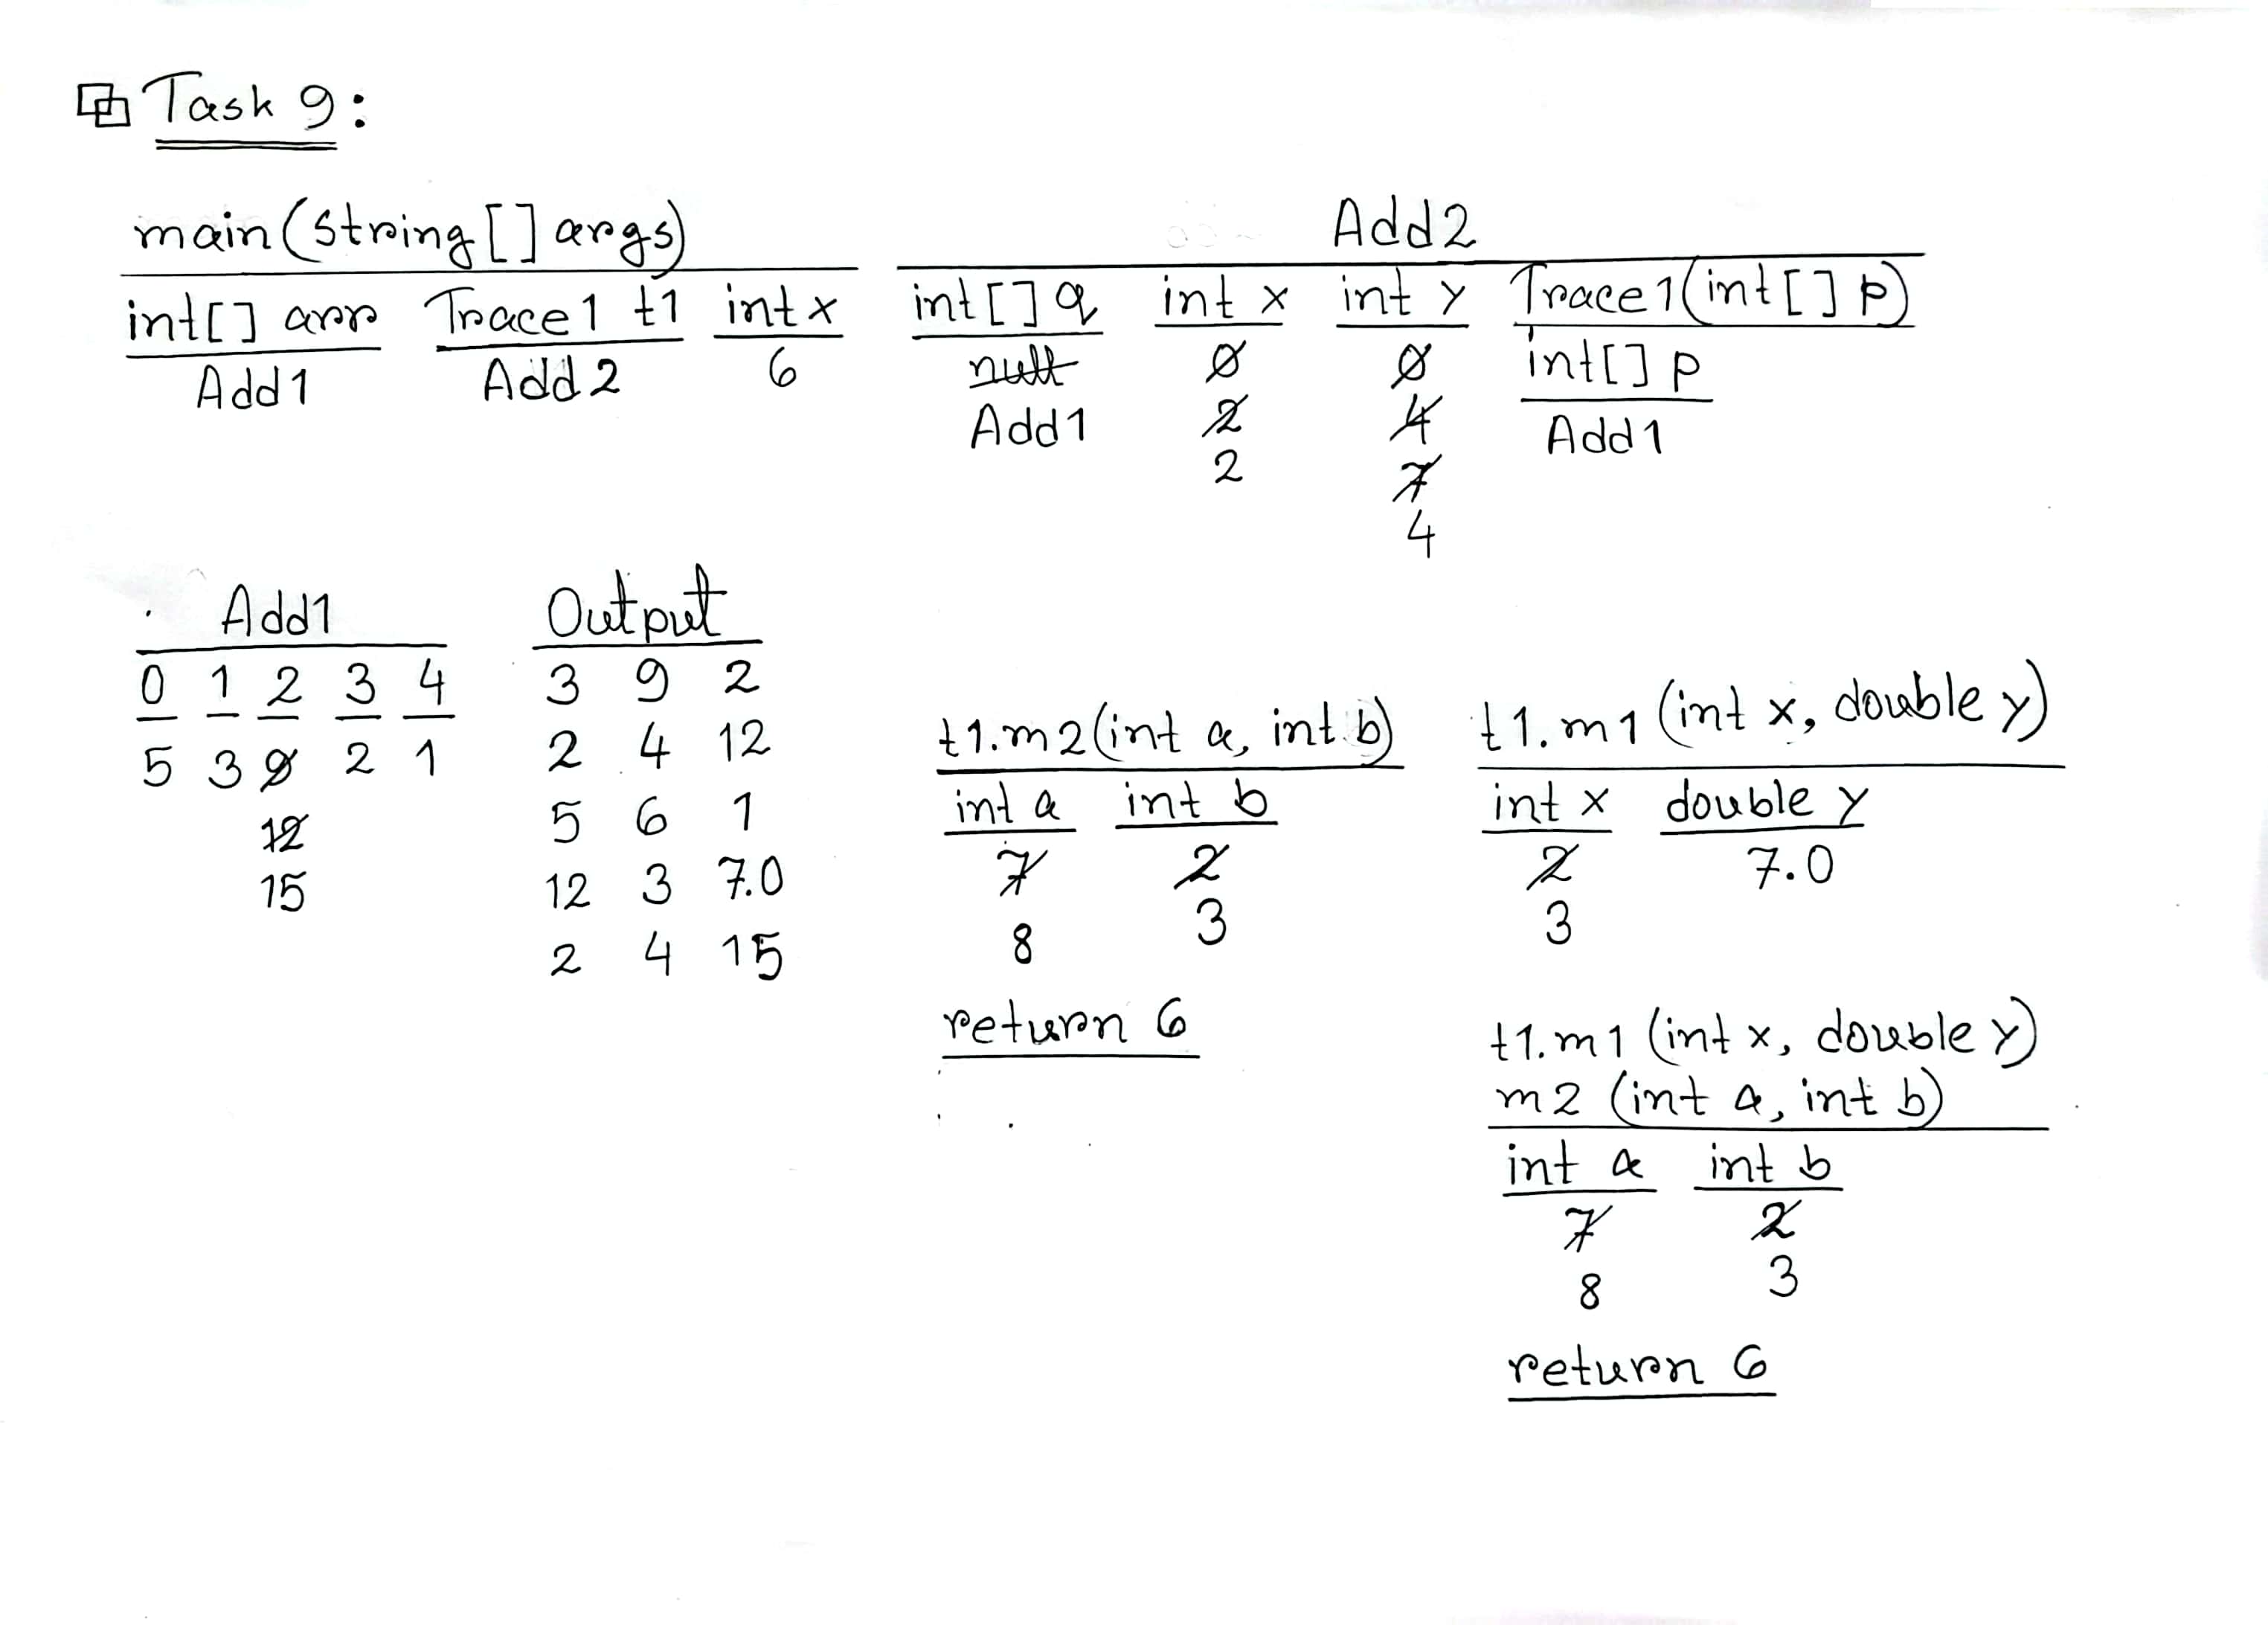 Task 9:
main(String[] args)
int[] arr Trace1 t1 int x
Add1 Add2 6
Add2
int[] q int x int y Trace1(int[] p)
null 0 0 int[] p
Add1 2 4 Add1
2 7
4
Add1
0 1 2 3 4
5 3 9 2 1
12
15
Output
3 9 2
2 4 12
5 6 1
12 3 7.0
2 4 15
t1.m2(int a, int b)
int a int b
7 2
8 3
return 6
t1.m1(int x, double y)
int x double y
2 7.0
3
t1.m1(int x, double y)
m2(int a, int b)
int a int b
7 2
8 3
return 6